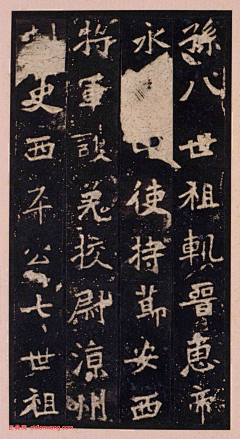 孫八世祖軌晉惠帝
永使持節安西
將軍護羌校尉涼州
史西平公七世祖